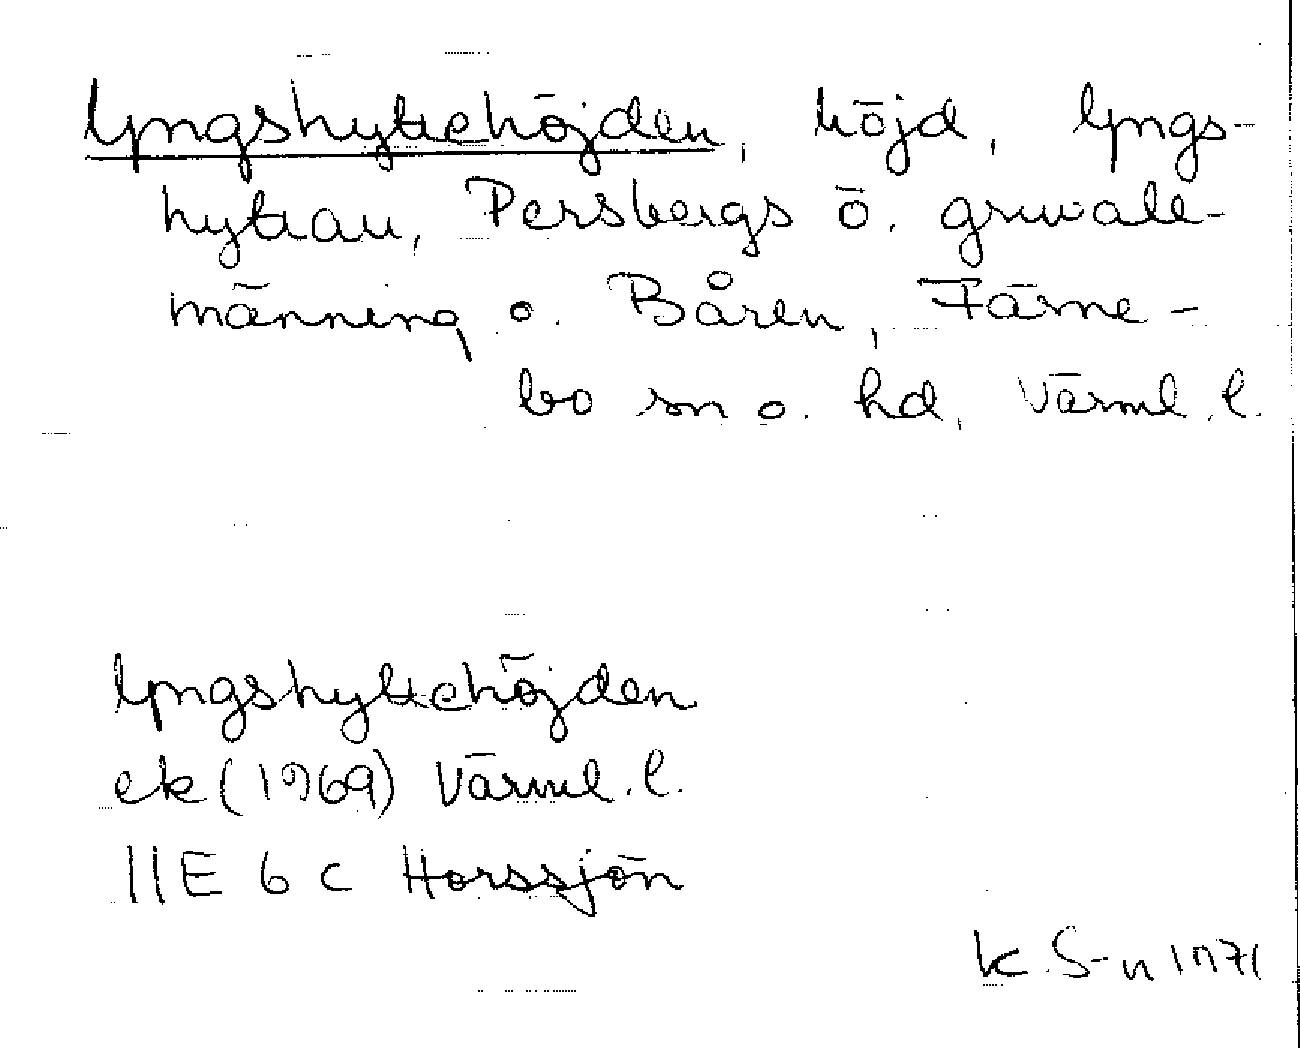 Lyngshyttehöjden, höjd, Lyngs-
hyttan, Persbergs ö. gruvall-
männing o. Båren, Färne-
bo sn o. hd, Värml. l.
Lyngshyttehöjden
ek (1969) Värml. l.
11E 6c Horssjön
K. S-n 1971